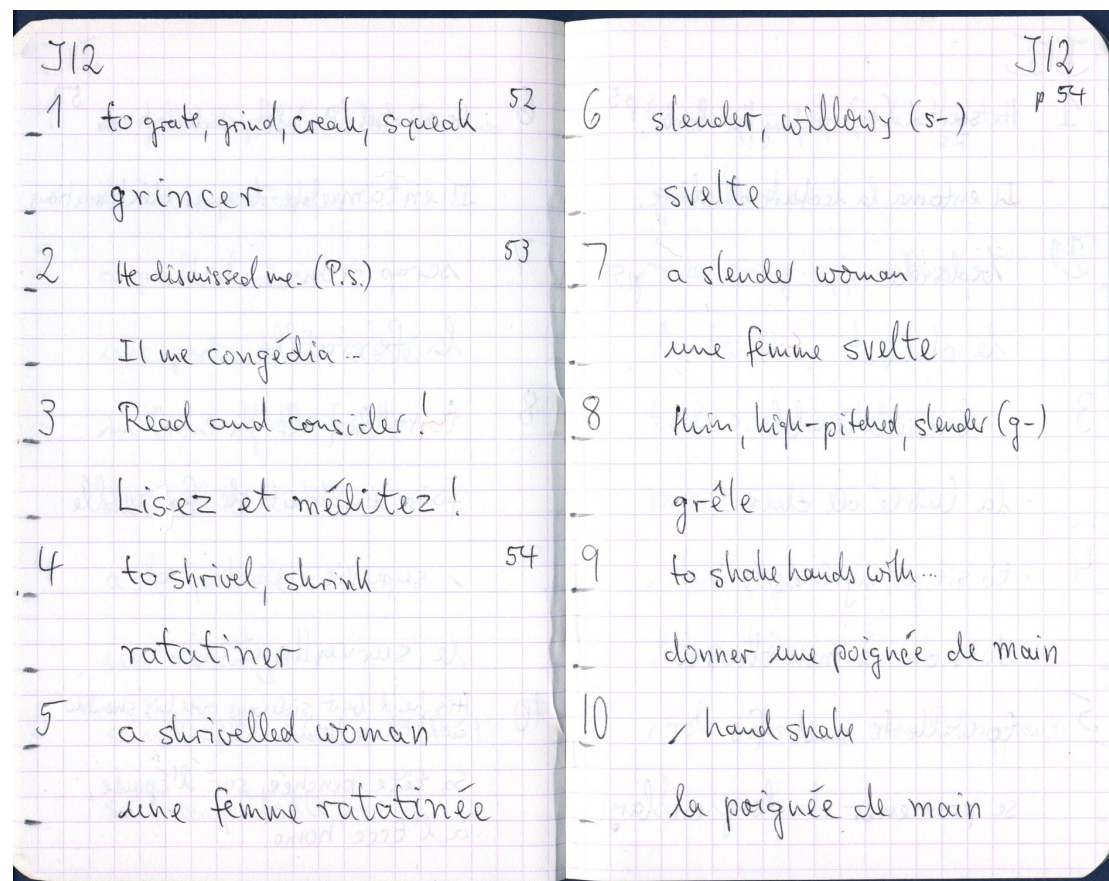 J12
1 to grate, grind, creak, squeak 52
grincer
2 He dismissed me. (P.s.) 53
Il me congédia ..
3 Read and consider!
Lisez et méditez!
4 to shrivel, shrink 54
ratatiner
5 a shrivelled woman
une femme ratatinée
J12
p 54
6 slender, willowy (s-)
svelte
7 a slender woman
une femme svelte
8 thin, high-pitched, slender (g-)
grêle
9 to shake hands with...
donner une poignée de main
10 hand shake
la poignée de main